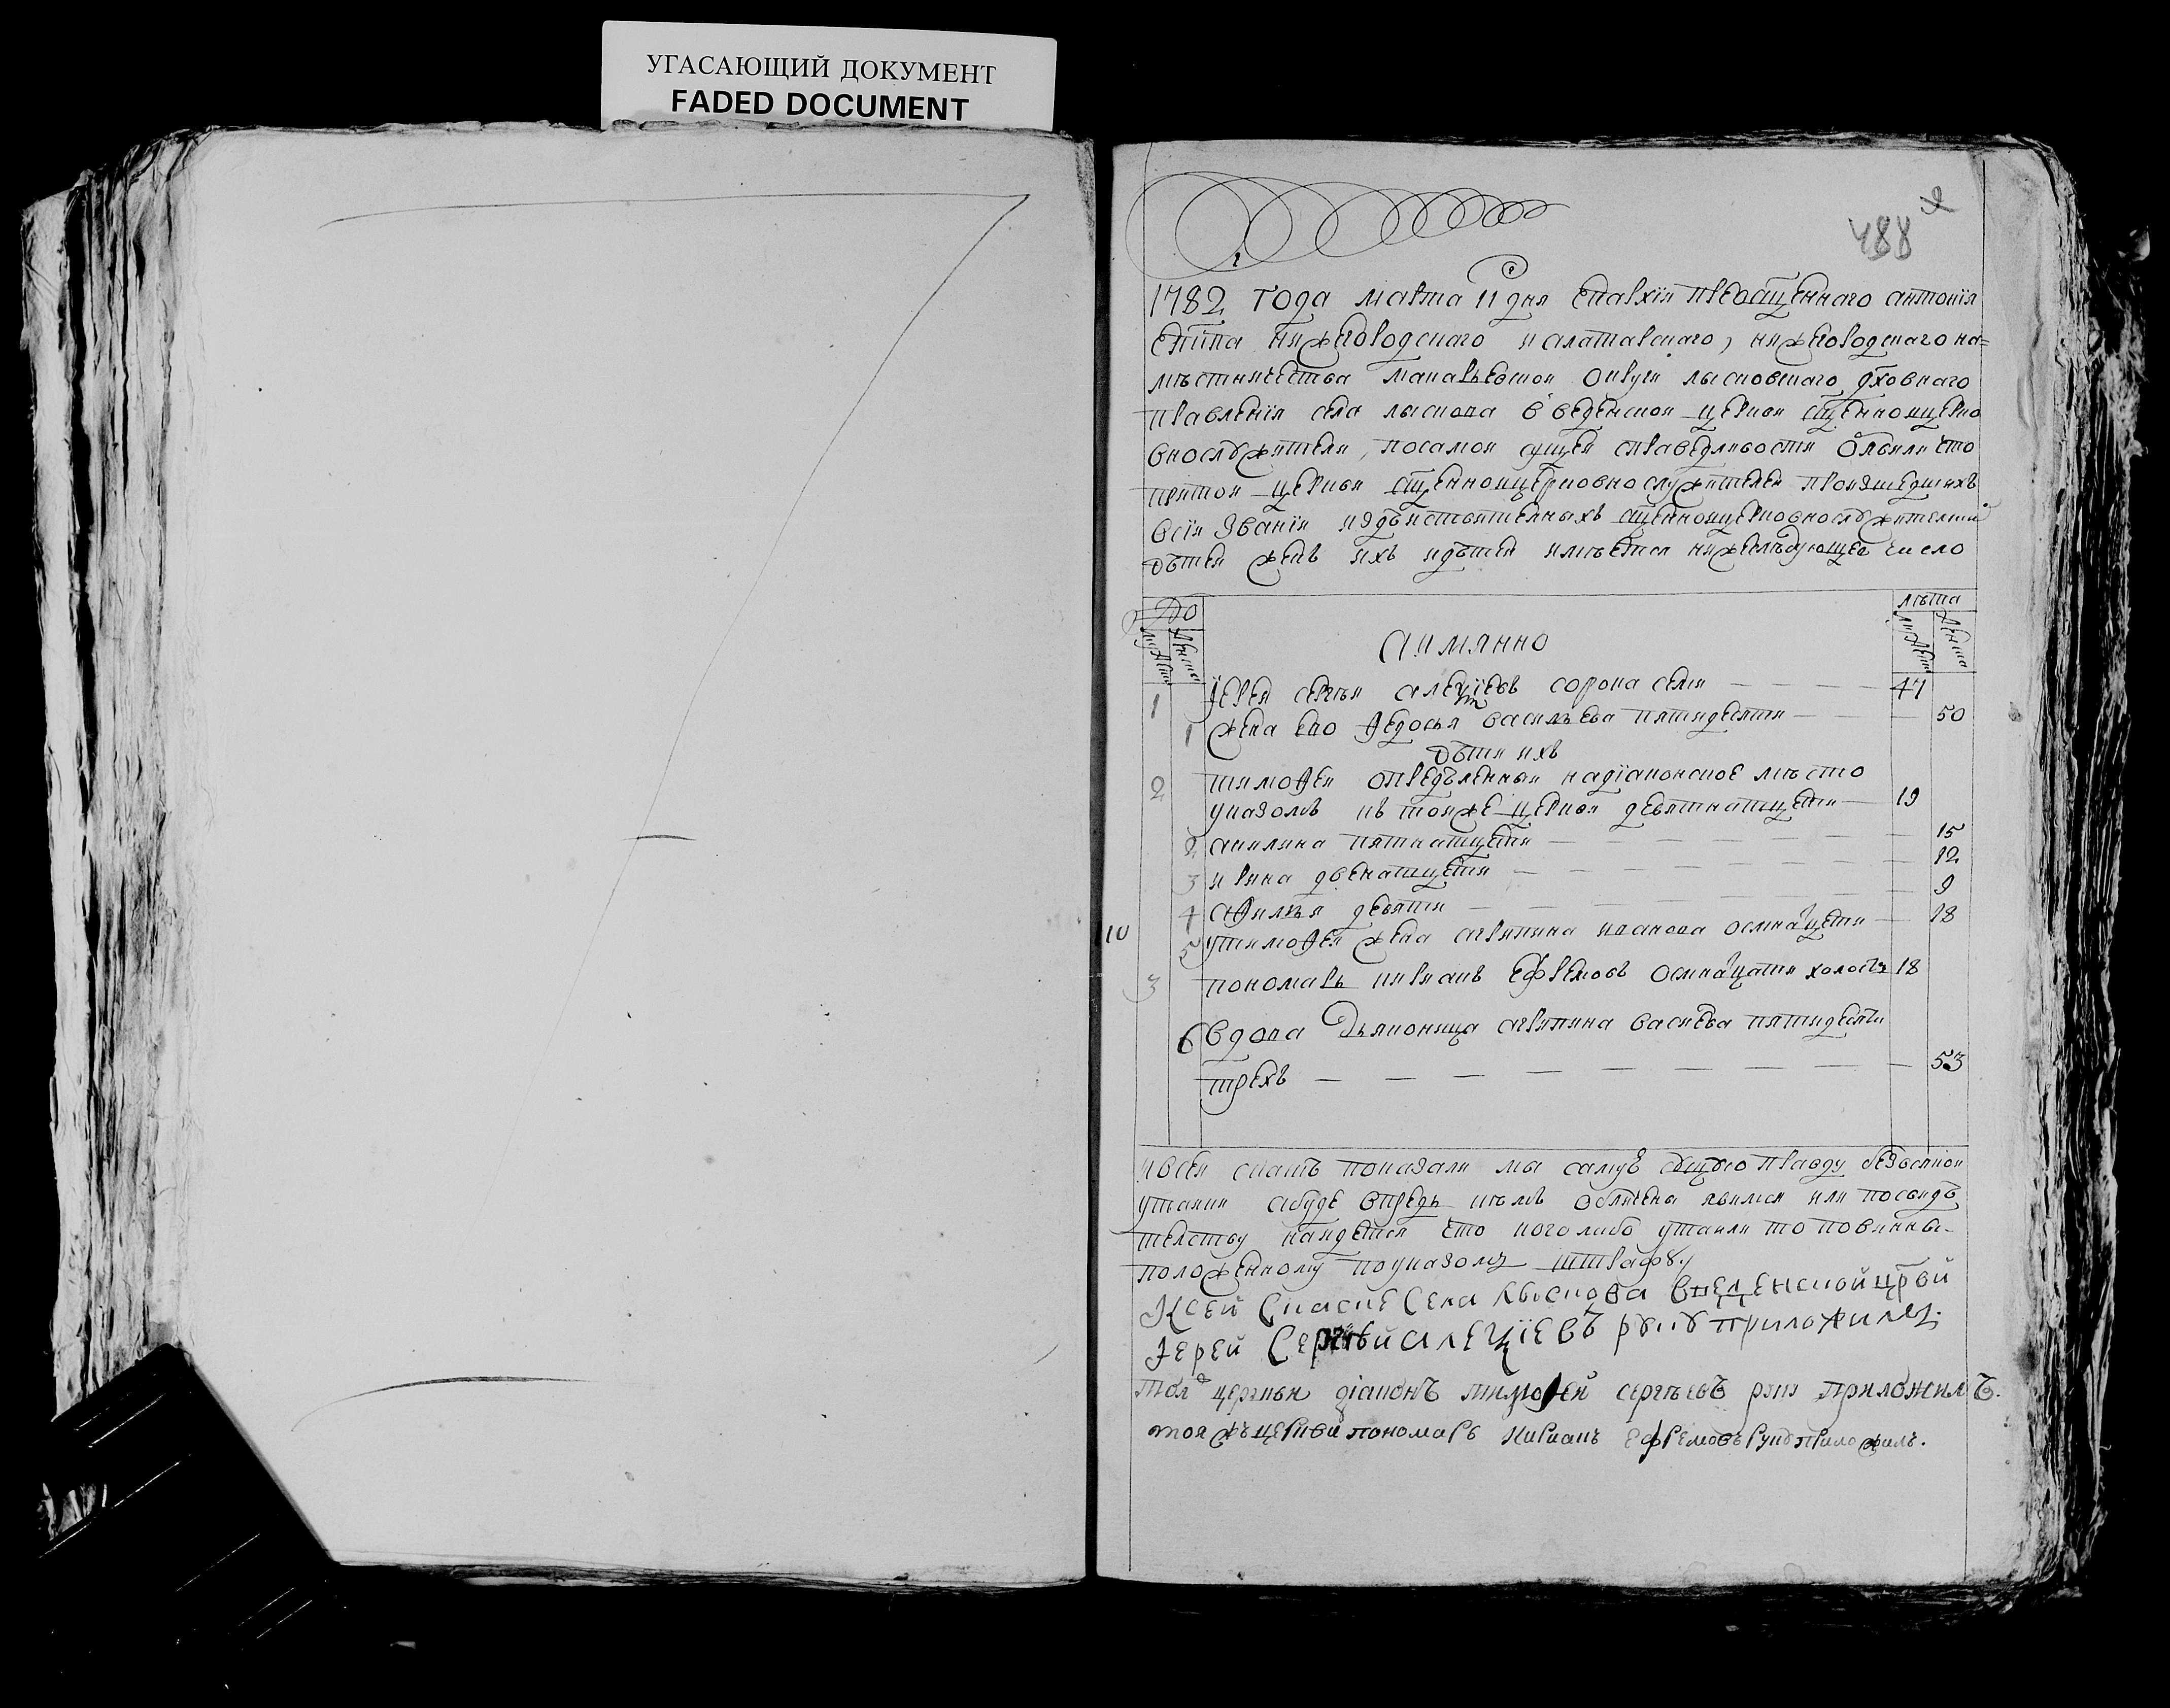 УГАСАЮЩИЙ ДОКУМЕНТ
FADED DOCUMENT
488
1782 года марта 11 дня епархїи преѡсщеннаго антонїя
епїпа нижегородскаго и алатарскаго, нижегородскаго на=
мѣстничества макарьевской округи лысковскаго дховнаго
правленїя села лыскова введенской церкви сщенноцерко
внослужители, посамой сущей справедливости объявили что
притой церкви сщенноцерковнослужителей произшедшихъ
всїи званїи издѣиствителныхъ сщенноцерковнослужителских
дѣтей женъ ихъ идѣтей имѣется нижеслѣдующее число
лѣта
мужеска женска
аимянно
мужеска женска
1 іерей сергѣй алеѯїевъ сорока семи 47
1 жена его ѳедосья васильева пятидесяти 50
дѣти ихъ
2 тимоѳей определенный надїаконское мѣсто
указомъ къ тойже церкви девятнатцети 19
2 акилина пятнатцети 15
3 ирина двенатцети 12
4 аѳимья девяти 9
10
5 утимоѳея жена агрипина иванова осмнацети 18
3 пономарь кириакъ ефремовъ осмнацати холостъ 18
6 вдова дьяконица агрипина василева пятидесяти
трехъ 53
ксей скаске показали мы самую сущую правду безвсякой
утайки абуде впредь кѣмъ обличены явимся или посвидѣ
телству найдется что кого либо утаили то повинны
положенному поуказомъ штрафу
Ксей Скаске Села Лыскова введенской цркви
Іерей Сергѣй алеѯїевъ руку приложилъ.
тоя церкви діаконъ тимоѳей сергѣевъ руку приложилъ.
тоя жъ церкви пономарь кириакъ ефремовъ руку приложилъ.